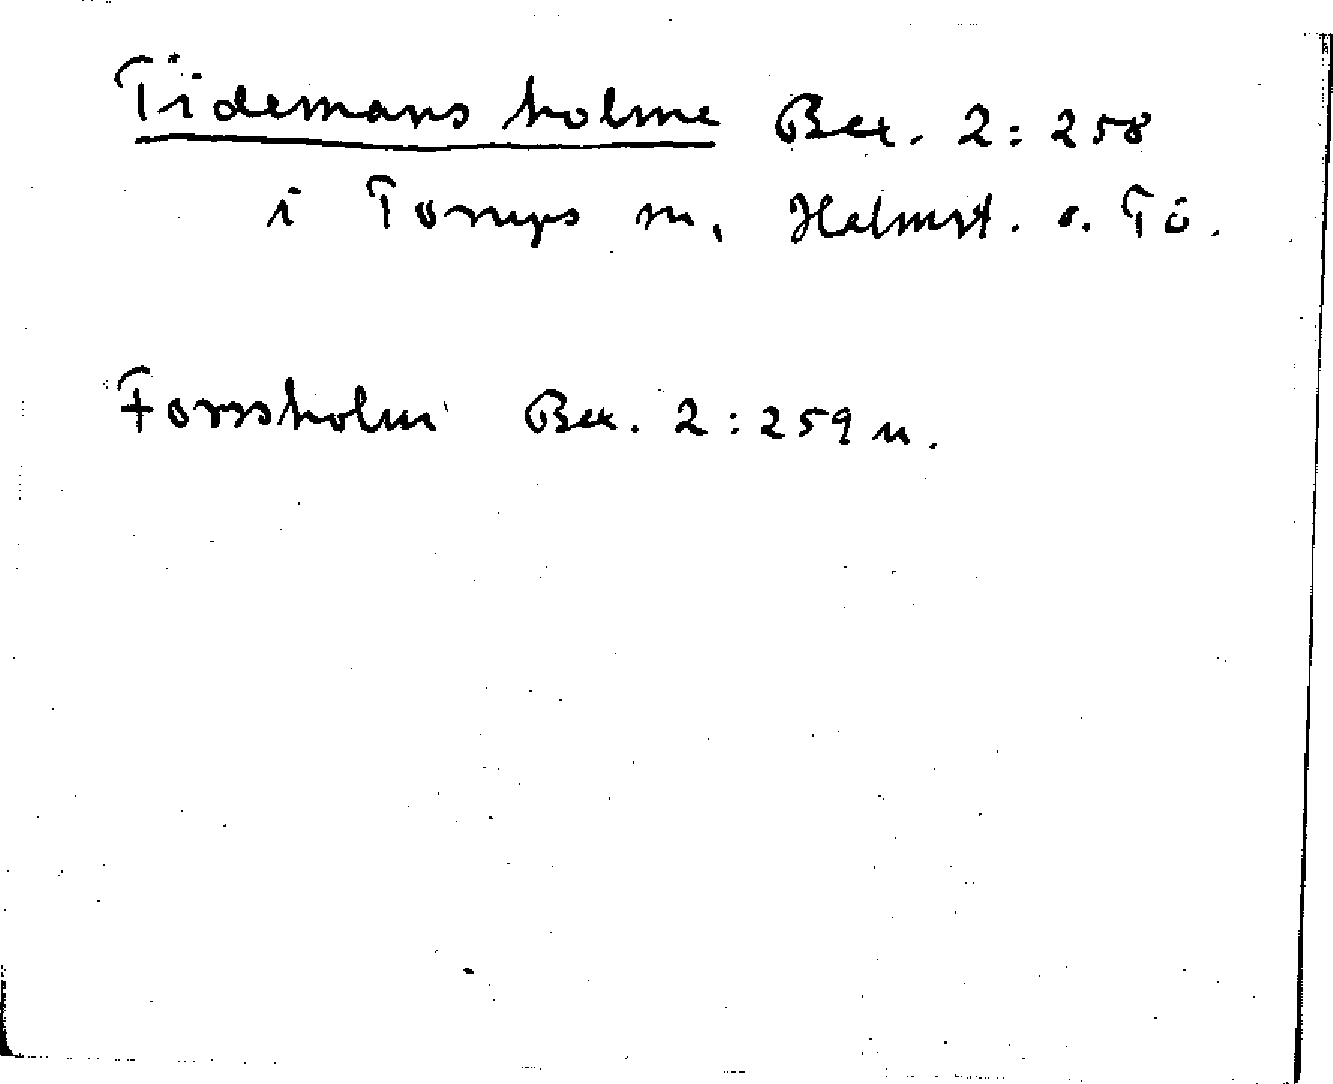 Tidemansholme Bex. 2:258
i Torups sn, Halmst. o. Tö.
Forssholm Bex. 2:259 n.